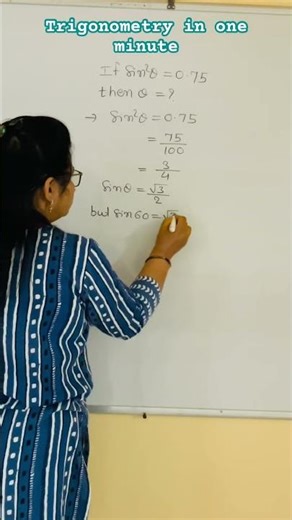 Trigonometry in one
minute
If sin²θ = 0.75
then θ = ?
→ sin²θ = 0.75
= 75/100
= 3/4
sinθ = √3/2
but sin 60 = √3